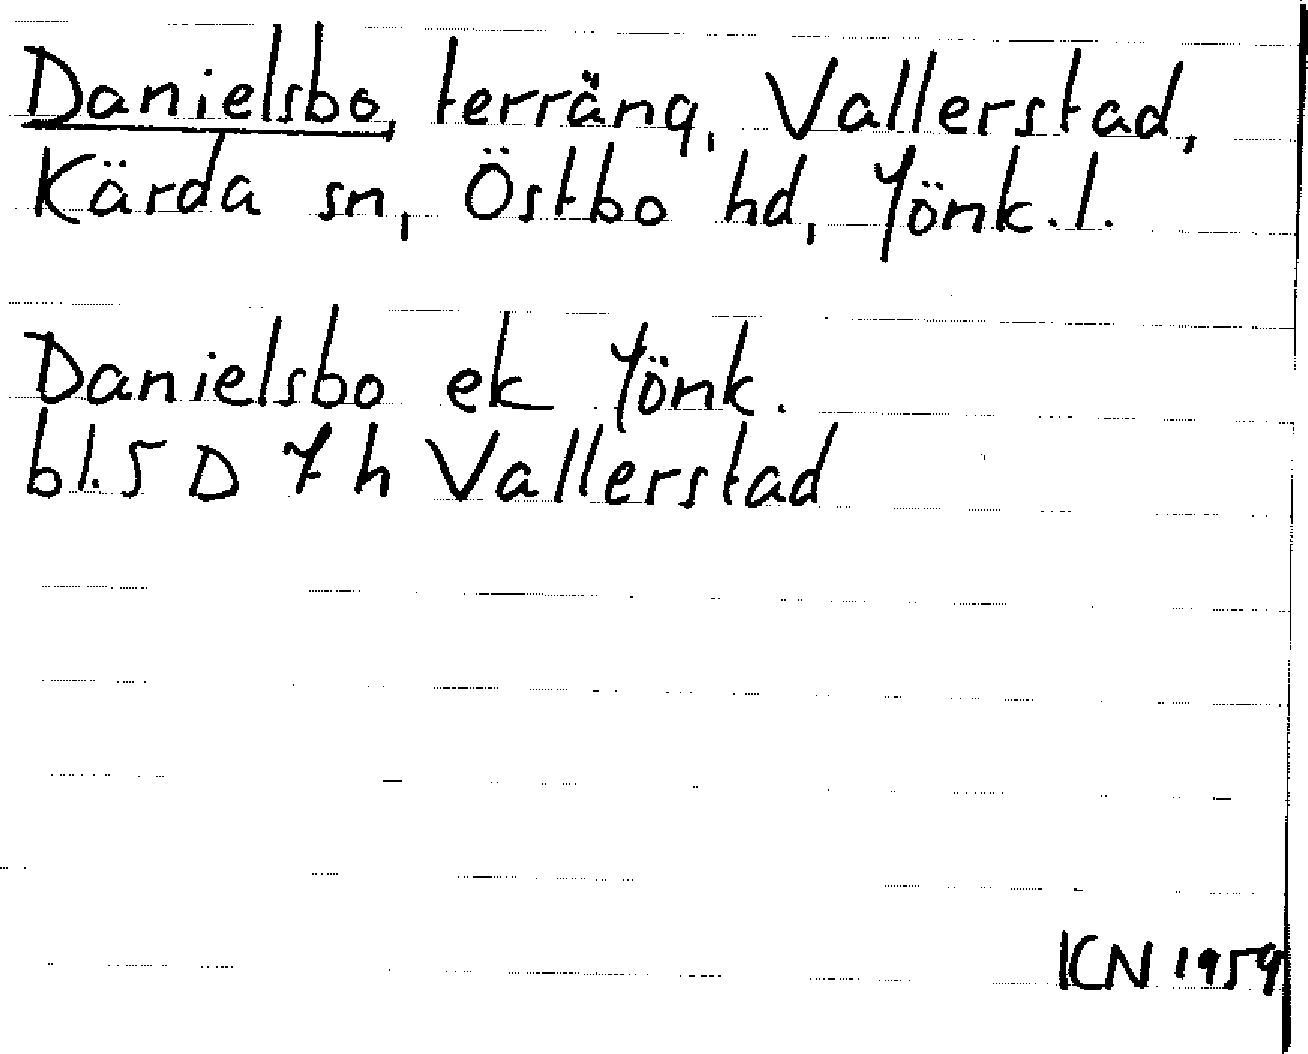 Danielsbo, terräng, Vallerstad,
Kärda sn, Östbo hd, Jönk.l.
Danielsbo ek Jönk.
bl. 5 D 7 h Vallerstad
KN 1959